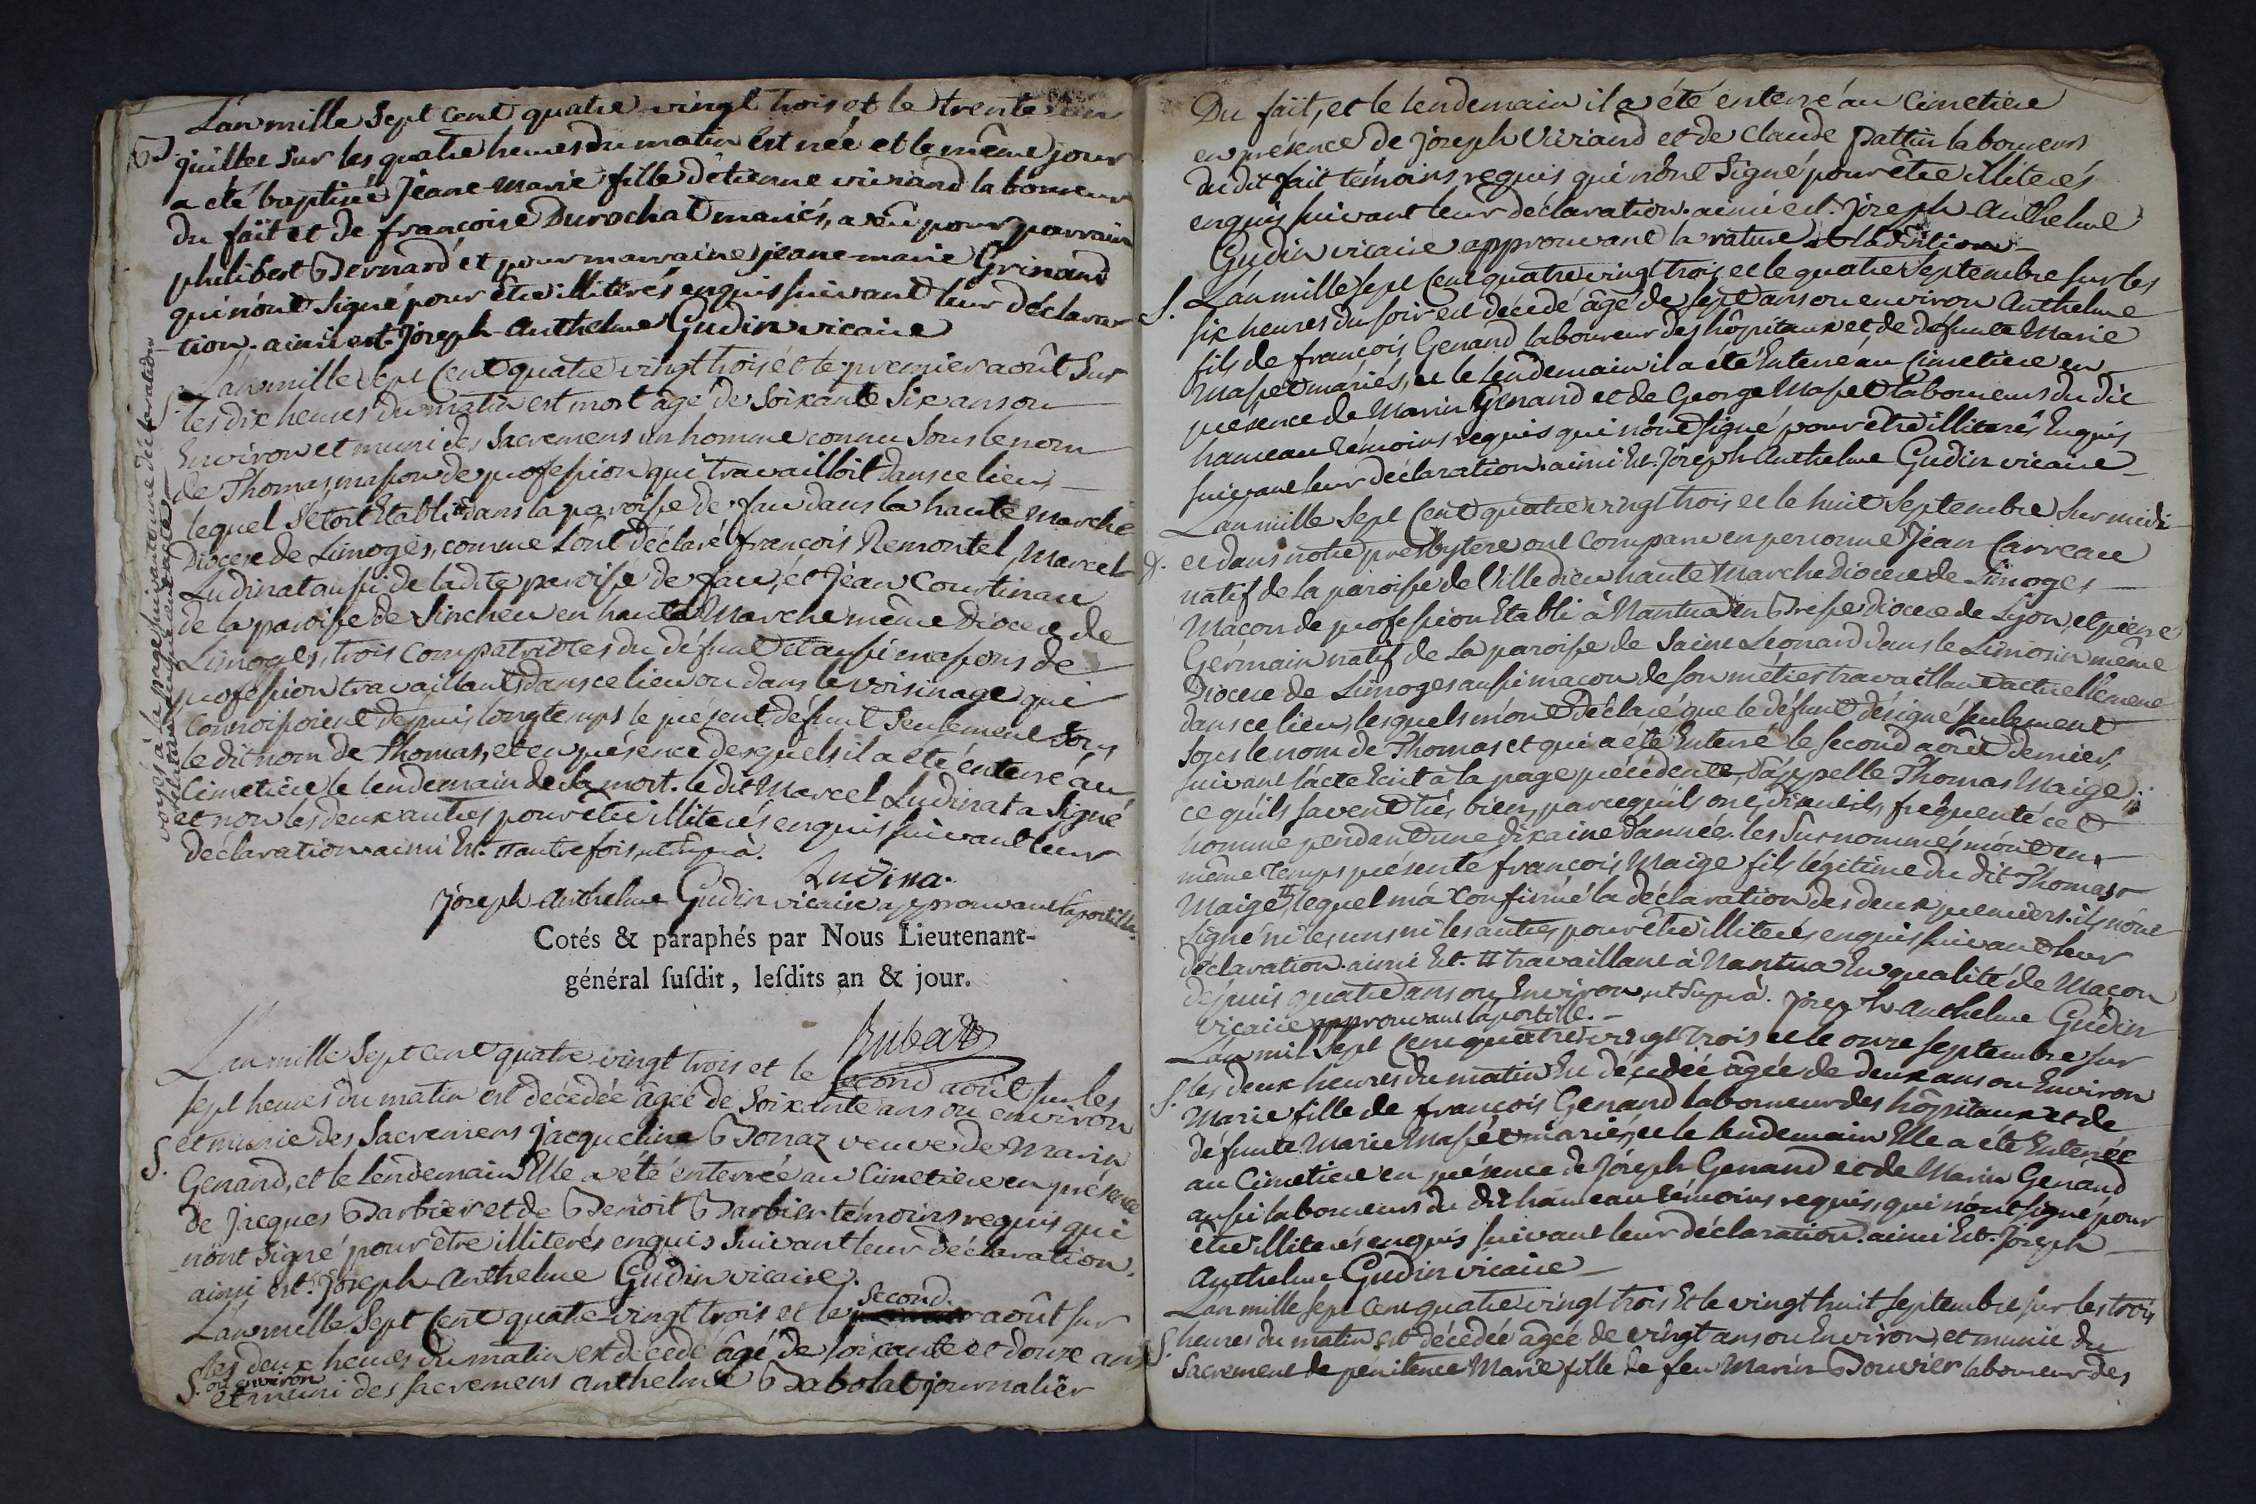 L'an mille Sept cent quatre vingt trois et le trente un
B. juillet Sur les quatre heures du matin est née et le même jour
a été baptisée Jeane-Marie fille d'étienne vivrand laboureur
du faït et de françoise Durochat mariés, a eû pour parrain
philibert Bernard et pour marraine jeane-marie Grinand
qui n'ont Signé pour être illiterés enquis suivant leur déclara-
-tion. ainsi est. Joseph-Anthelme Gudin vicaire
S. L'an mille sept Cent quatre vingt trois et le premier août Sur
les dix heures du matin est mort agé de Soixante Six ans ou
Environ et muni des Sacremens un homme connu Sous le nom
de Thomas, masson de profession qui travailloit dans ce lieu,
lequel S'étoit Etabli dans la paroisse de fau dans la haute Marche
Diocese de Limoges, comme l'ont déclaré françois Remontel, Marcel
Ludinat aussi de ladite paroisse de fau, et Jean Courtinau
de la paroisse de Sincheu en haute Marche même Diocese de
Limoges, trois compatriotes du défunt et aussi massons de
profession travaillants dans ce lieu ou dans le voisinage qui
connoissoient depuis longtemps le présent défunt Seulement Sous
le dit nom de Thomas, et en présence desquels il a été enterré au
Cimetiere le lendemain de sa mort. le dit Marcel Ludinat a Signé
et non les deux autres pour être illiterés enquis suivant leur
déclaration ainsi Est. # autrefois, ut Suprà.
Ludina.
Joseph-Anthelme Gudin vicaire approuvant l'apostille.
voyés à la page suivante une déclaration
Cotés & paraphés par Nous Lieutenant-
général susdit, lesdits an & jour.
Rubat
L'an mille Sept Cent quatre vingt trois et le second août sur les
sept heures du matin est décédée âgée de Soixante ans ou environ
S. et munie des Sacremens jacqueline Bonaz veuve de Marin
Genand, et le lendemain Elle a été enterrée au Cimetiere en présence
de Jacques Barbier et de Benoit Barbier témoins requis qui
n'ont Signé pour être illiterés enquis Suivant leur déclaration.
ainsi est. Joseph-Anthelme Gudin vicaire.
Second.
L'an mille Sept Cent quatre vingt trois et le août sur
les deux heures du matin est décédé âgé de soixante et douze ans
ou environ
S. et muni des sacremens anthelme Babolat journalier
Du faït, et le lendemain il a été enterré au Cimetiere
en présence de joseph Vivrand et de Claude Pattin laboureurs
du dit faït témoins requis qui n'ont Signé pour être illiterés
enquis suivant leur déclaration. ainsi est. Joseph-Anthelme
Gudin vicaire approuvant la rature et l'addition
S. L'an mille sept Cent quatre vingt trois et le quatre Septembre sur les
six heures du soir est décédé âgé de sept ans ou environ Anthelme
fils de françois Genand laboureur des hôpitaux et de défunte Marie
Masset mariés, et le lendemain il a été Enterré au Cimetiere en
présence de Marin Genand et de George Masset laboureurs du dit
hameau témoins requis qui n'ont signé pour être illiterés Enquis
suivant leur déclaration. ainsi Est. Joseph Anthelme Gudin vicaire
L'an mille Sept Cent quatre vingt trois et le huit Septembre sur midi
D. et dans notre presbytere ont comparu en personne Jean Carreau
natif de la paroisse de Villedieu haute Marche Diocese de Limoges
Maçon de profession Etabli à Nantua en Bresse diocese de Lyon, et pierre
Germain natif de la paroisse de Saint Leonard dans le Limosin même
Diocese de Limoges aussi maçon de son métier travaillant actuellement
dans ce lieu, lesquels m'ont déclaré que le défunt désigné seulement
sous le nom de Thomas et qui a été Enterré le second août dernier,
suivant l'acte Ecrit à la page précédente, s'appelle Thomas Maige;
ce qu'ils savent très bien, parcequ'ils ont, disent-ils, fréquenté cet
homme pendant une dixaine d'année. les Susnommés m'ont en
même Temps présenté françois Maige fils légitime du dit Thomas
Maige, # lequel m'a confirmé la déclaration des deux premiers. ils n'ont
signé ni les uns ni les autres pour être illiterés enquis suivant leur
déclaration. ainsi Est. # travaillant à Nantua En qualité de Maçon
depuis quatre ans ou Environ, ut Suprà. Joseph Anthelme Gudin
vicaire approuvant l'apostille.
L'an mil Sept Cent quatre vingt trois et le onze septembre sur
S. les deux heures du matin Est décédée âgée de deux ans ou Environ
Marie fille de françois Genand laboureur des hôpitaux et de
défunte Marie Masset mariés, et le lendemain Elle a été Enterrée
au Cimetiere en présence de Joseph Genand et de Marin Genand
aussi laboureurs du dit hameau témoins requis, qui n'ont signé pour
être illiterés enquis suivant leur déclaration. ainsi Est. Joseph
Anthelme Gudin vicaire
L'an mille sept Cent quatre vingt trois Et le vingt huit septembre sur les trois
S. heures du matin est décédée agée de vingt ans ou Environ, et munie du
Sacrement de penitence Marie fille de feu Marin Bouvier laboureur des